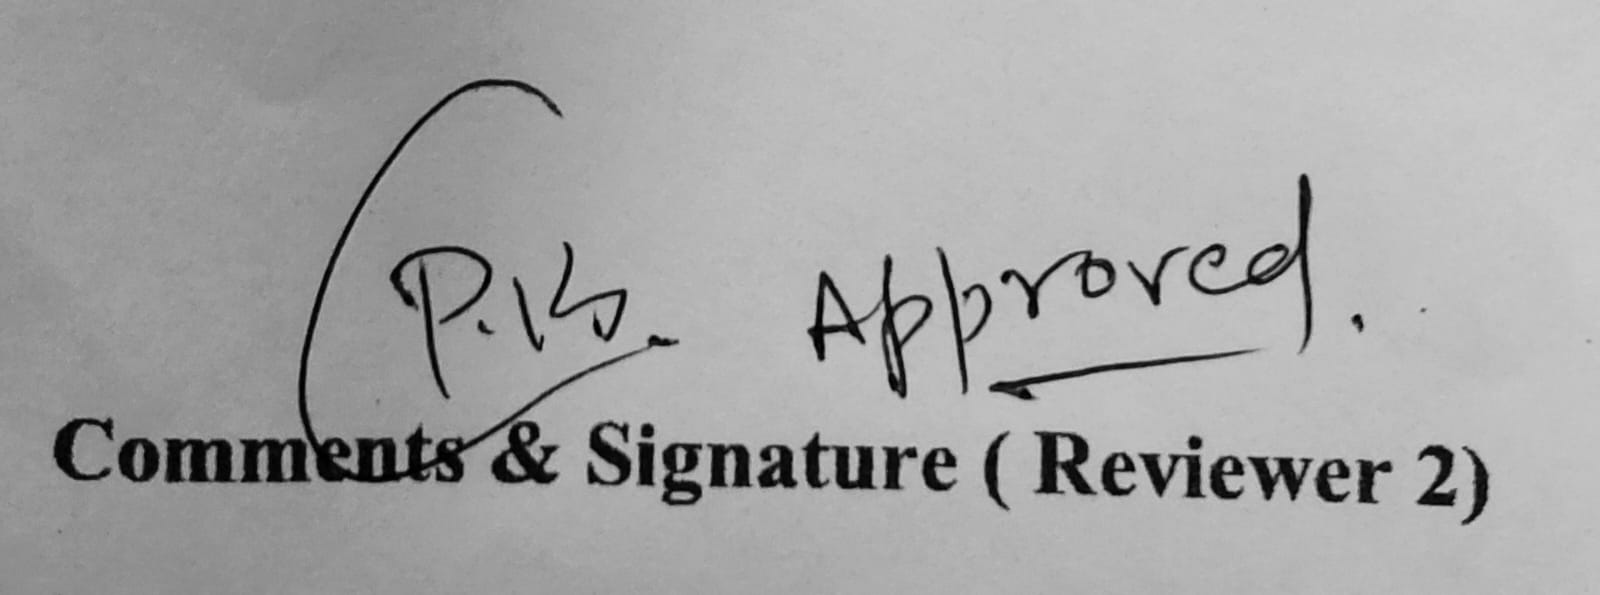 Approved.
Comments & Signature ( Reviewer 2)